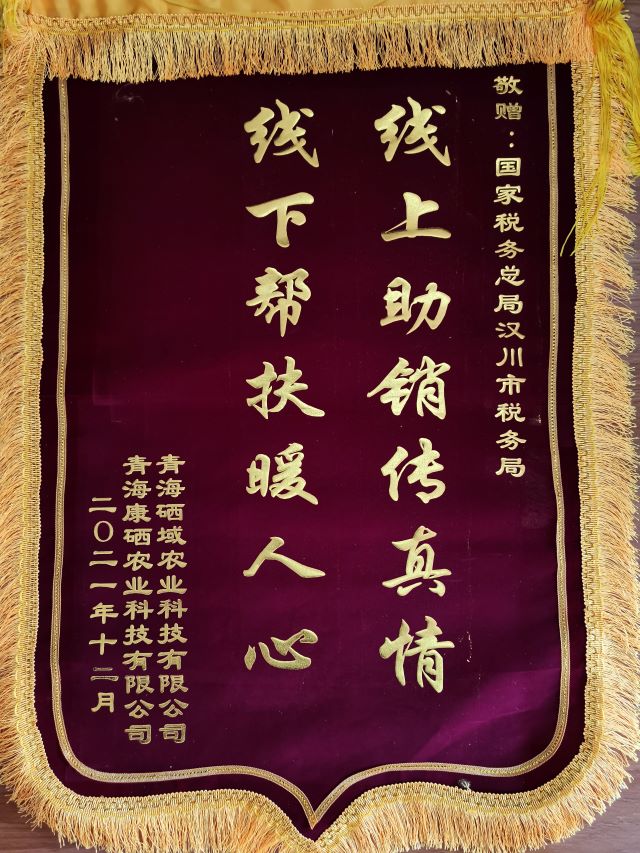 敬赠：国家税务总局汉川市税务局
线上助销传真情
线下帮扶暖人心
青海硒域农业科技有限公司
青海康硒农业科技有限公司
二〇二一年十二月